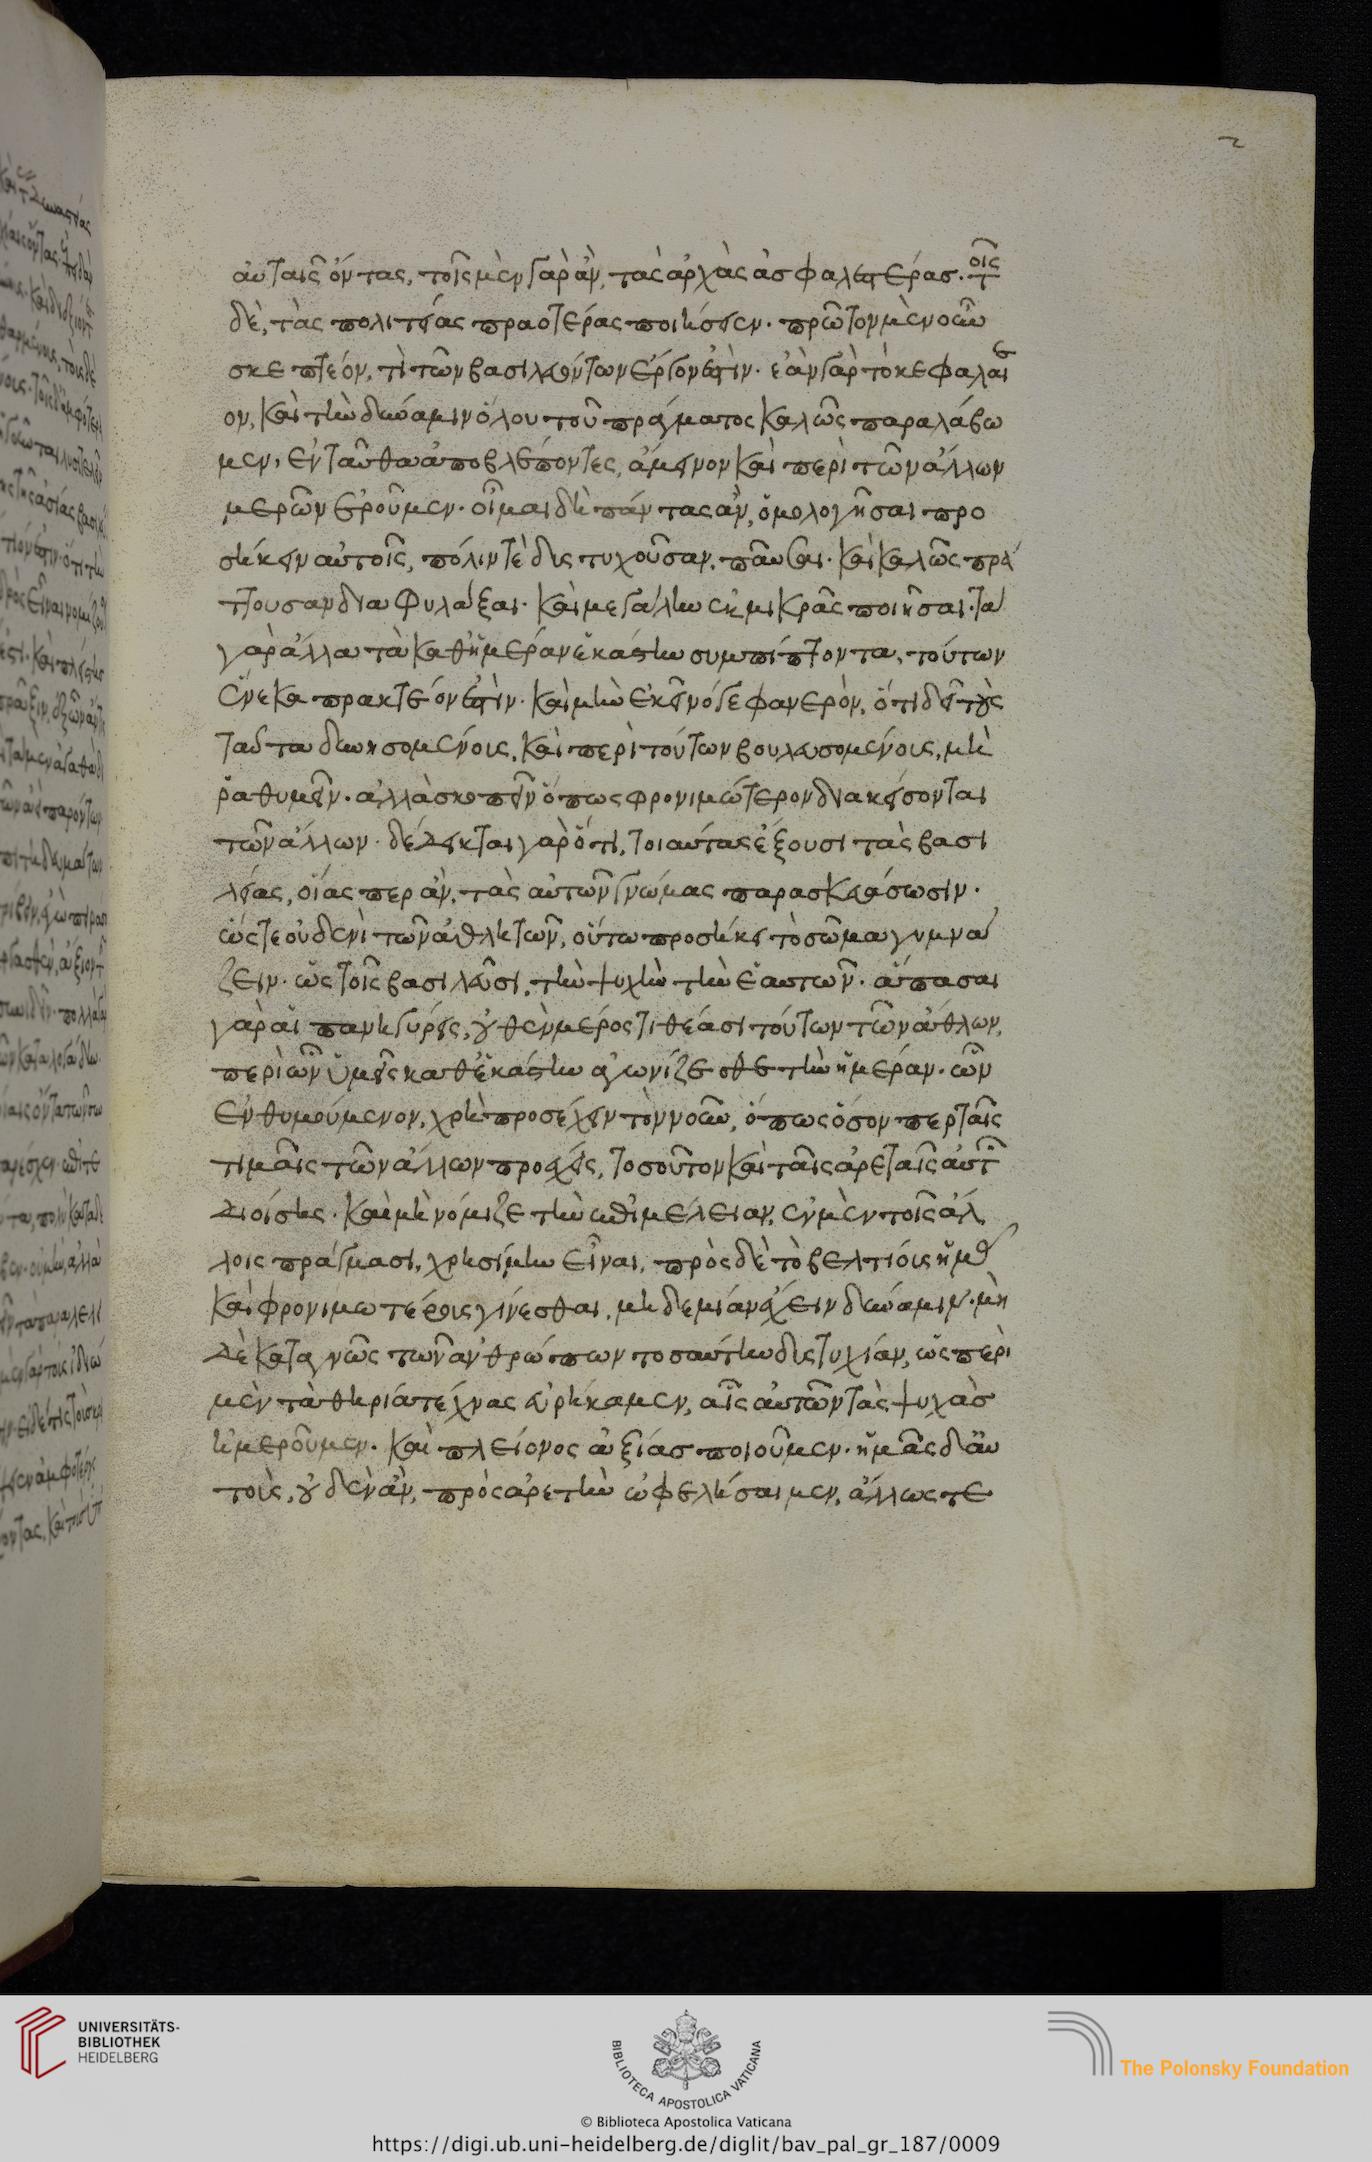 αὐταῖς ὄντας, τοῖς μὲν γὰρ ἂν, τὰς ἀρχὰς ἀσφαλεστέρας. τοῖς
δὲ, τὰς πολιτείας πραοτέρας ποιήσειεν. πρῶτον μὲν οὖν
σκεπτέον, τί τῶν βασιλευόντων ἔργον ἐστίν. ἐὰν γὰρ τὸ κεφάλαι
ον, καὶ τὴν δύναμιν ὅλου τοῦ πράγματος καλῶς παραλάβω
μεν, ἐνταῦθα ἀποβλέποντες, ἄμεινον καὶ περὶ τῶν ἄλλων
μερῶν ἐροῦμεν. οἶμαι δὴ πάντας ἂν, ὁμολογῆσαι προ
σήκειν αὐτοῖς, πόλιν τὲ δυστυχοῦσαν, παῦσαι. καὶ καλῶς πρά
ττουσαν διαφυλάξαι. καὶ μεγάλην ἐκ μικρᾶς ποιῆσαι. τὰ
γὰρ ἄλλα τὰ καθ' ἡμέραν ἑκάστην συμπίπτοντα, τούτων
ἕνεκα πρακτέον ἐστίν. καὶ μὴν ἐκεῖνό γε φανερὸν, ὅτι δεῖ τοὺς
ταῦτα δυνησομένοις, καὶ περὶ τούτων βουλευσομένοις, μὴ
ῥαθυμεῖν. ἀλλὰ σκοπεῖν ὅπως φρονιμώτερον διακείσονται
τῶν ἄλλων. δέδεικται γὰρ ὅτι, τοιαύτας ἕξουσι τὰς βασι
λείας, οἵας περ ἂν, τὰς αὐτῶν γνώμας παρασκευάσωσιν.
ὥστε οὐδενὶ τῶν ἀθλητῶν, οὕτω προσήκει τὸ σῶμα γυμνά
ζειν. ὡς τοῖς βασιλεῦσι, τὴν ψυχὴν τὴν ἑαυτῶν. ἅπασαι
γὰρ αἱ πανηγύρεις, οὐθὲν μέρος τιθέασι τούτων τῶν ἄθλων,
περὶ ὧν ὑμεῖς καθ' ἑκάστην ἀγωνίζεσθε τὴν ἡμέραν. ὧν
ἐνθυμούμενον, χρὴ προσέχειν τὸν νοῦν, ὅπως ὅσον περ ταῖς
τιμαῖς τῶν ἄλλων προέχεις, τοσοῦτον καὶ ταῖς ἀρεταῖς αὐτῶν
διοίσεις. καὶ μὴ νόμιζε τὴν ἐπιμέλειαν, ἐν μὲν τοῖς ἄλ
λοις πράγμασι, χρησίμην εἶναι, πρὸς δὲ τὸ βελτίοις ἡμᾶς
καὶ φρονιμωτέροις γίνεσθαι, μηδεμίαν ἔχειν δύναμιν. μὴ
δὲ καταγνῷς τῶν ἀνθρώπων τοσαύτην δυστυχίαν, ὡς περὶ
μὲν τὰ θηρία τέχνας εὑρήκαμεν, αἷς αὐτῶν τὰς ψυχὰς
ἡμεροῦμεν. καὶ πλείονος ἀξίας ποιοῦμεν. ἡμᾶς δ' αὐ
τοὺς, οὐδὲν ἂν, πρὸς ἀρετὴν ὠφελήσαιμεν, ἄλλως τε
UNIVERSITÄTS-
BIBLIOTHEK
HEIDELBERG
BIBLIOTECA APOSTOLICA VATICANA
© Biblioteca Apostolica Vaticana
The Polonsky Foundation
https://digi.ub.uni-heidelberg.de/diglit/bav_pal_gr_187/0009